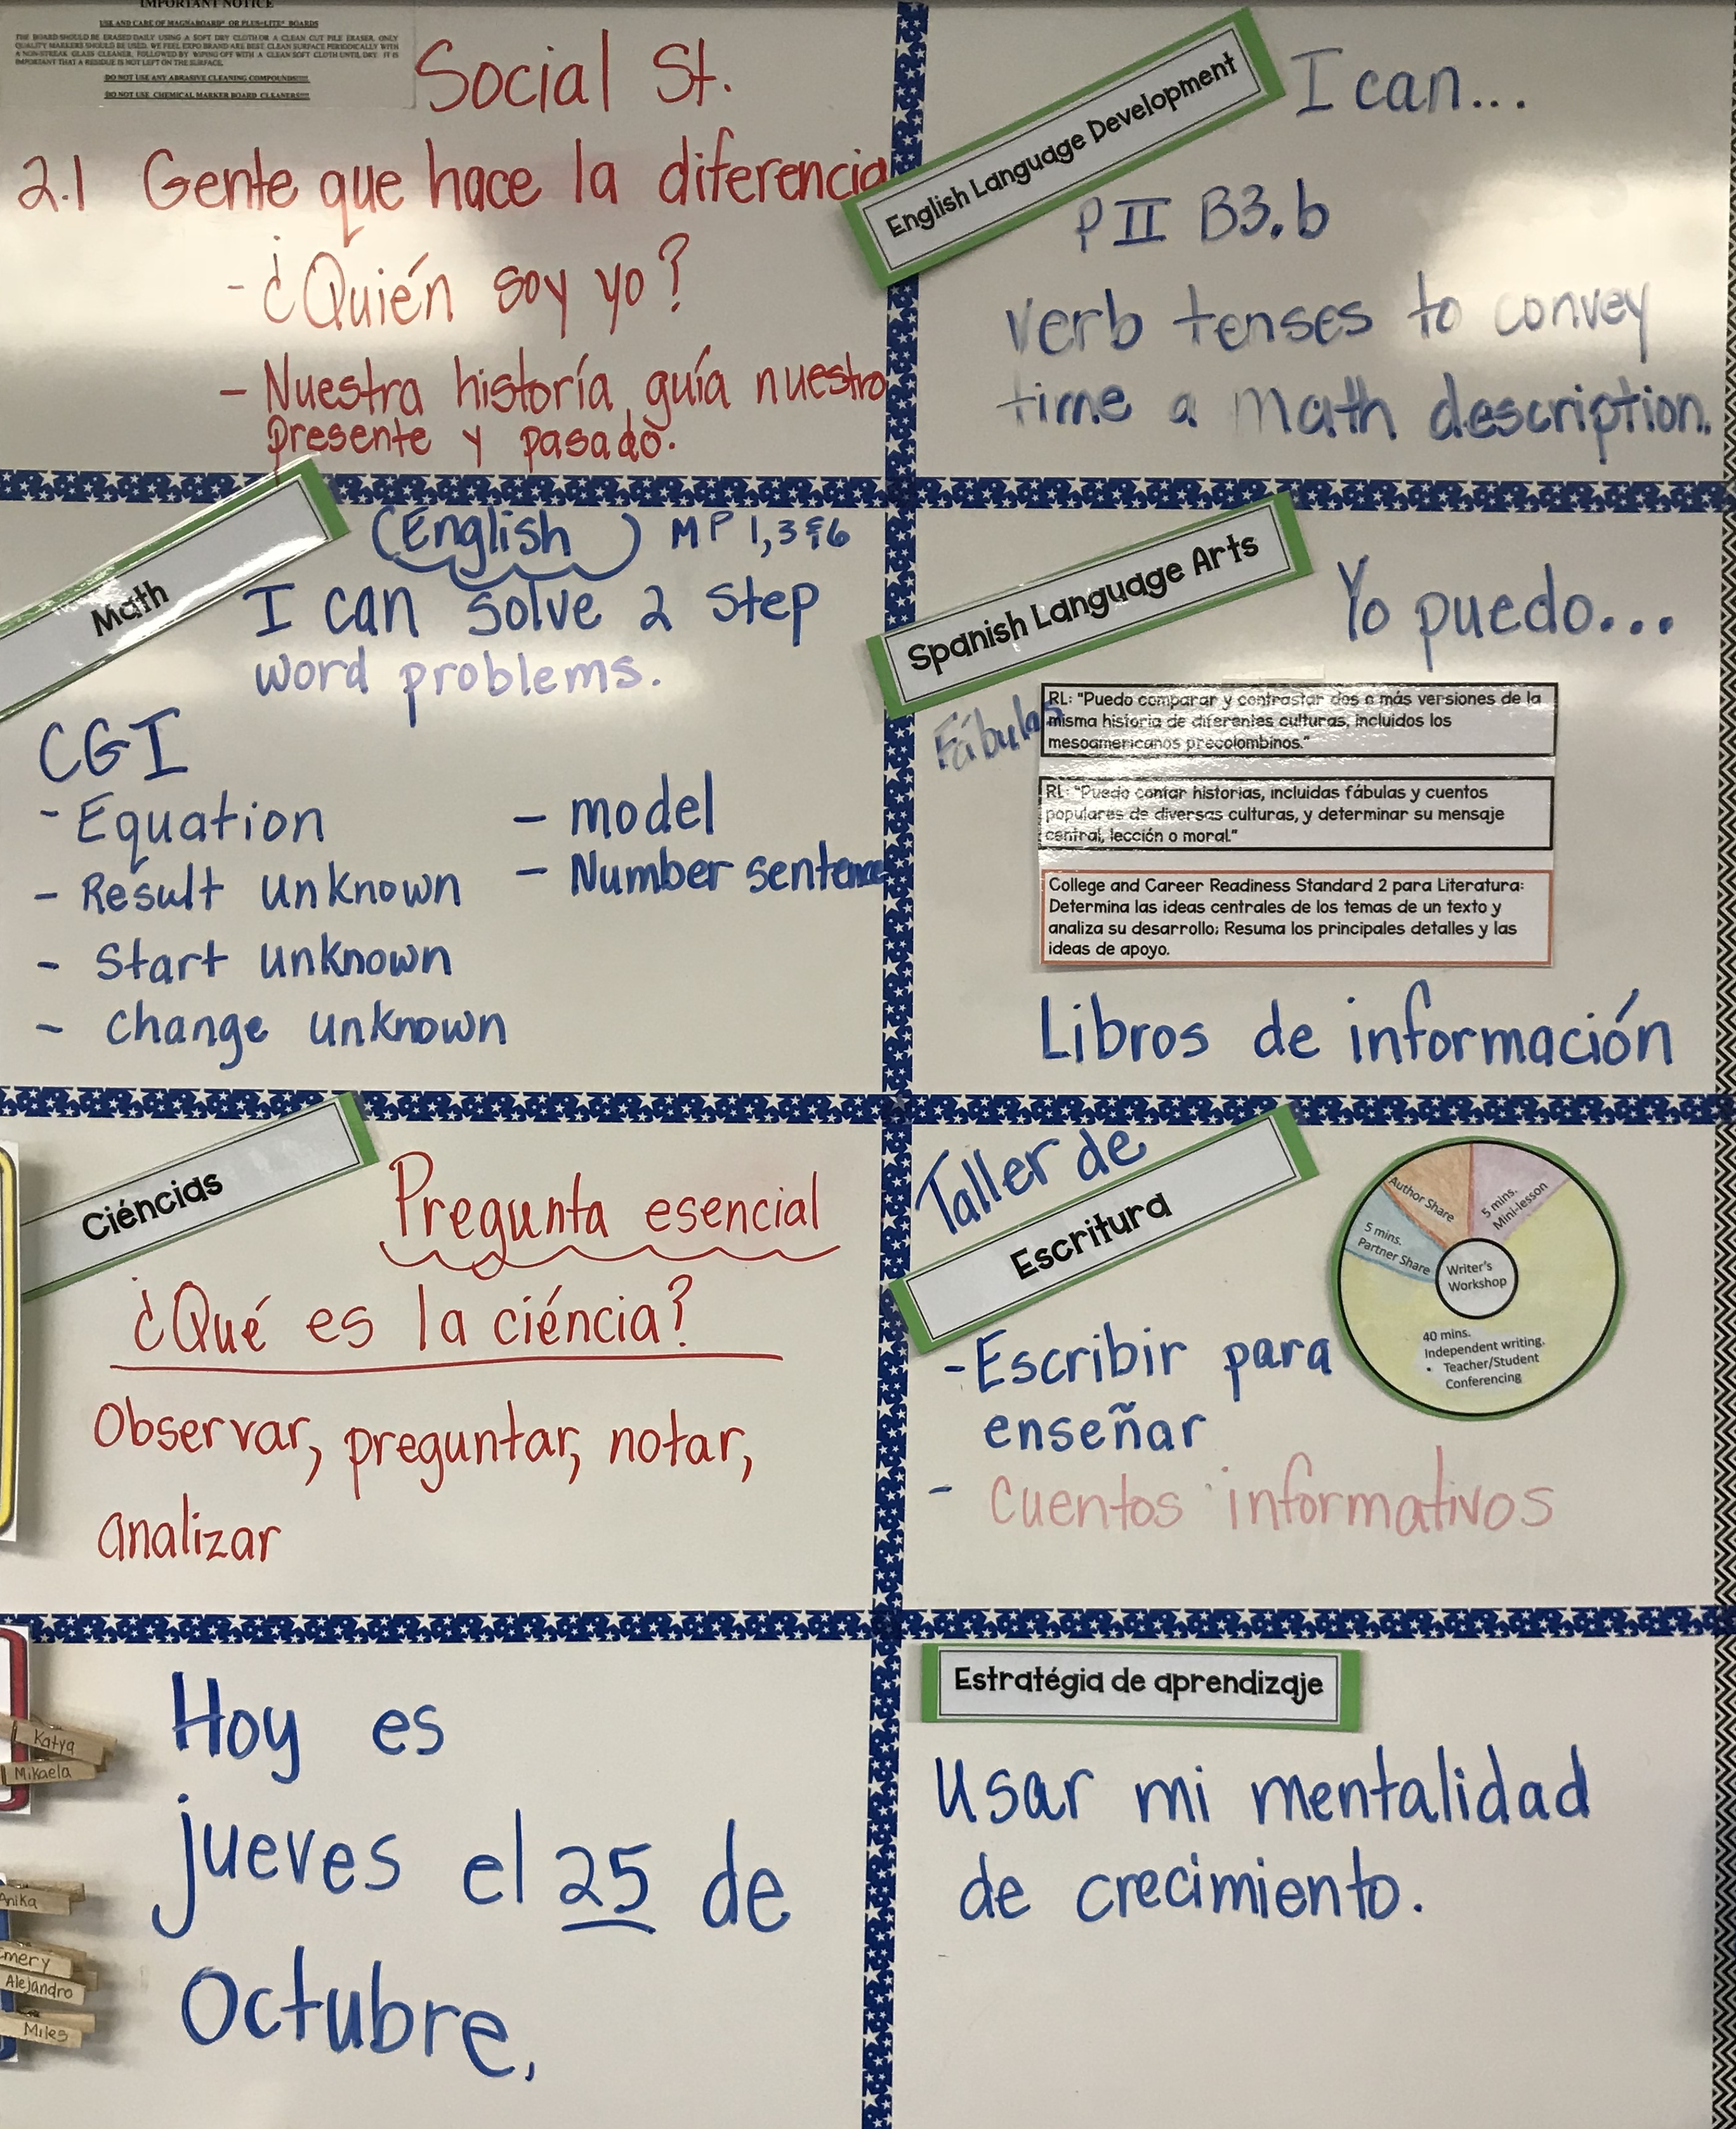 IMPORTANT NOTICE
USE AND CARE OF MAGNABOARD® OR PLUS-LITE® BOARDS
THE BOARD SHOULD BE ERASED DAILY USING A SOFT DRY CLOTH OR A CLEAN CUT PILE ERASER. ONLY
QUALITY MARKERS SHOULD BE USED. WE FEEL EXPO BRAND ARE BEST. CLEAN SURFACE PERIODICALLY WITH
A NON-STREAK GLASS CLEANER, FOLLOWED BY WIPING OFF WITH A CLEAN SOFT CLOTH UNTIL DRY. IT IS
IMPORTANT THAT A RESIDUE IS NOT LEFT ON THE SURFACE.
DO NOT USE ANY ABRASIVE CLEANING COMPOUNDS!!!!
DO NOT USE CHEMICAL MARKER BOARD CLEANERS!!!!
Social St.
2.1 Gente que hace la diferencia
- ¿Quién soy yo?
- Nuestra historía guía nuestro
presente y pasado.
English Language Development
I can...
P II B3.b
verb tenses to convey
time a math description.
Math
(English) MP 1,3 & 6
I can solve 2 step
word problems.
CGI
- Equation
- Result unknown
- Start unknown
- Change unknown
- model
- Number sentence
Spanish Language Arts
Yo puedo...
Fábulas
RL: "Puedo comparar y contrastar dos o más versiones de la
misma historia de diferentes culturas, incluidos los
mesoamericanos precolombinos."
RL: "Puedo contar historias, incluidas fábulas y cuentos
populares de diversas culturas, y determinar su mensaje
central, lección o moral."
College and Career Readiness Standard 2 para Literatura:
Determina las ideas centrales de los temas de un texto y
analiza su desarrollo; Resuma los principales detalles y las
ideas de apoyo.
Libros de información
Ciéncias
Pregunta esencial
¿Qué es la ciéncia?
Observar, preguntar, notar,
analizar
Taller de
Escritura
Author Share
5 mins.
Mini-lesson
5 mins.
Partner Share
Writer's
Workshop
40 mins.
Independent writing.
• Teacher/Student
Conferencing
- Escribir para
enseñar
- Cuentos informativos
Hoy es
jueves el 25 de
Octubre,
Katya
Mikaela
Anika
Emery
Alejandro
Miles
Estratégia de aprendizaje
Usar mi mentalidad
de crecimiento.